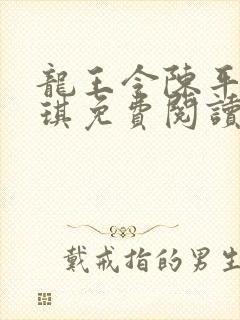 龍王令陳平
琪免費閱讀
戴戒指的男生